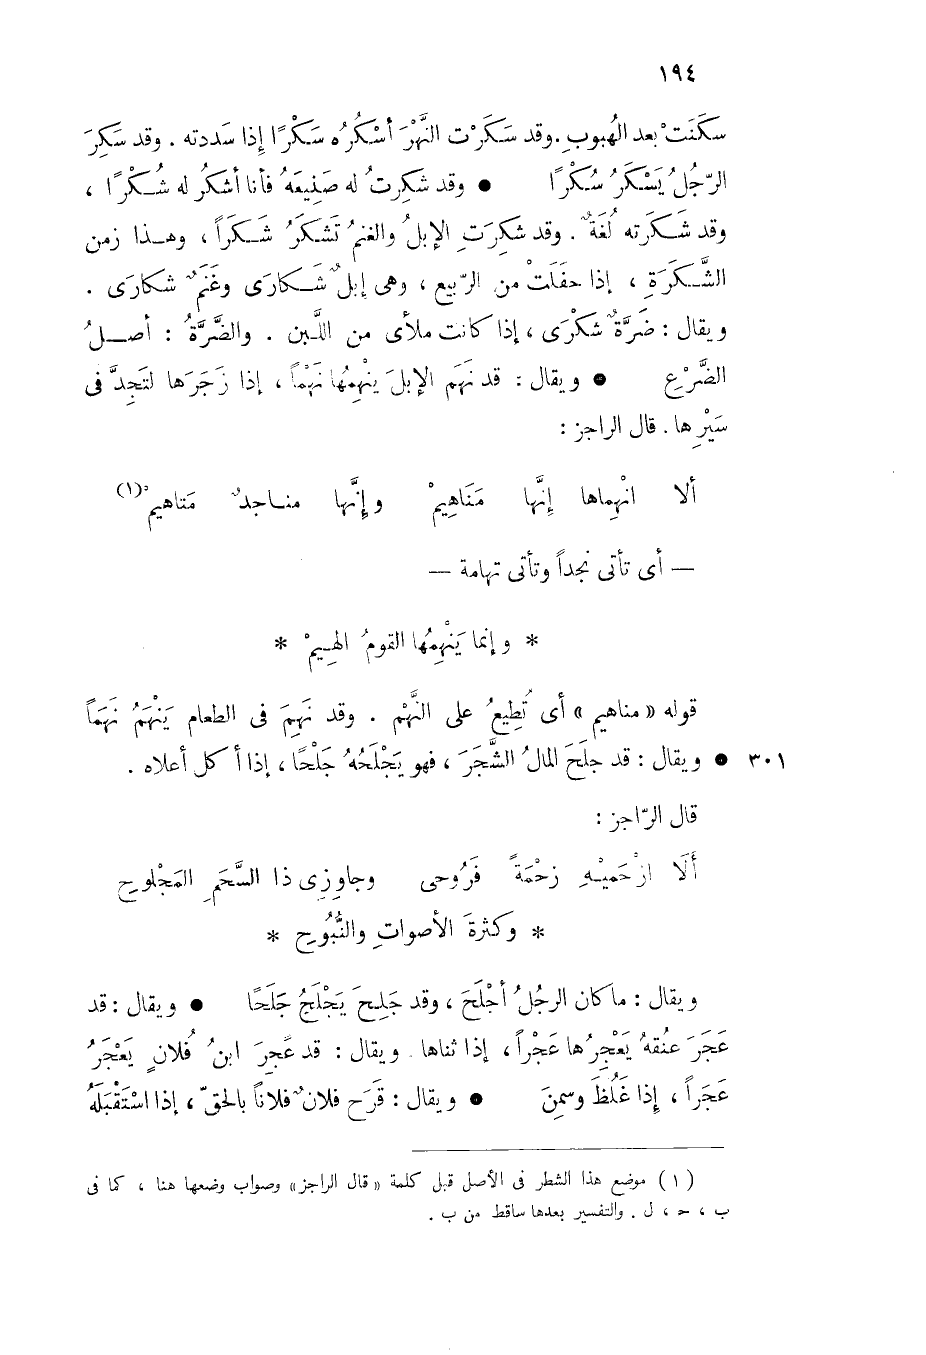 ١٩٤
سكَنَتْ بعد الهُبوبِ. وقد سَكَرْت النَّهْرَ أَسْكُرُه سَكْرًا إِذا سَددته . وقد سَكِرَ
الرّجُلُ يَسْكَرُ سُكْرًا ● وقد شكِرتُ له صَنِيعَهُ فأنا أشكُر له شُكْرًا ،
وقد شَكَرته لُغَةٌ . وقد شكِرَتِ الإبلُ والغنمُ تَشْكَرُ شَكَرَاً ، وهذا زمن
الشَّكَرَةِ ، إذا حفَلَتْ من الرّبيع ، وهى إبلٌ شَكارَى وغَنَمٌ شكارَى .
ويقال : ضَرَّةٌ شكْرَى ، إذا كانت ملأى من اللَّبن . والضَّرَّةُ : أصلُ
الضَّرْعِ ● ويقال : قد نَهَم الإبلَ ينْهِمُها نَهْماً ، إذا زَجَرَها لتَجِدَّ فى
سَيْرِها . قال الراجز :
ألا انْهِماها إِنَّها مَنَاهِيمْ وإِنَّها مناجدٌ مَتاهيمْ (١)
— أى تأتى نجداً وتأتى تهامة —
* وإنما يَنْهِمُها القومُ الهِيمْ *
قوله « مناهيم » أى تُطِيعُ على النَّهْم . وقد نَهِمَ فى الطعام يَنْهَمُ نَهَماً
٣٠١ ● ويقال : قد جلَحَ المالُ الشَّجَرَ ، فهو يَجْلَحُهُ جَلْحًا ، إذا أكل أعلاه .
قال الرّاجز :
أَلَا ازْحَمِيْهِ زحْمَةً فَرُوحى وجاوِزِى ذا السَّحَمِ المَجْلوحِ
* وكثرةَ الأصواتِ والنُّبُوحِ *
ويقال : ماكان الرجُلُ أجْلَحَ ، وقد جَلِحَ يَجْلَحُ جَلَحًا ● ويقال : قد
عَجَرَ عنقهُ يَعْجِرُها عَجْراً ، إذا ثناها . ويقال : قد عَجِرَ ابنُ فُلانٍ يَعْجَرُ
عَجَراً ، إِذا غَلُظَ وسمِنَ ● ويقال : قَرَح فلانٌ فلاناً بالحقّ ، إذا اسْتَقْبَلَهُ
(١) موضع هذا الشطر فى الأصل قبل كلمة « قال الراجز » وصواب وضعها هنا ، كما فى
ب ، ح ، ل . والتفسير بعدها ساقط من ب .